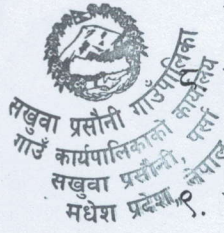 सखुवा प्रसौनी गाउँपालिका
गाउँ कार्यपालिकाको कार्यालय
सखुवा प्रसौनी, पर्सा
मधेश प्रदेश, नेपाल
९.